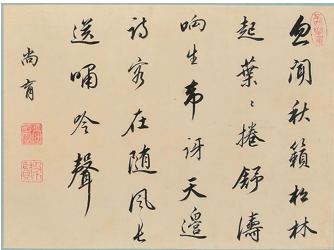 忽聞秋籟松林
起葉〻捲舒濤
响生訝天邊
詩客在随風長
送嘯吟聲
尚育